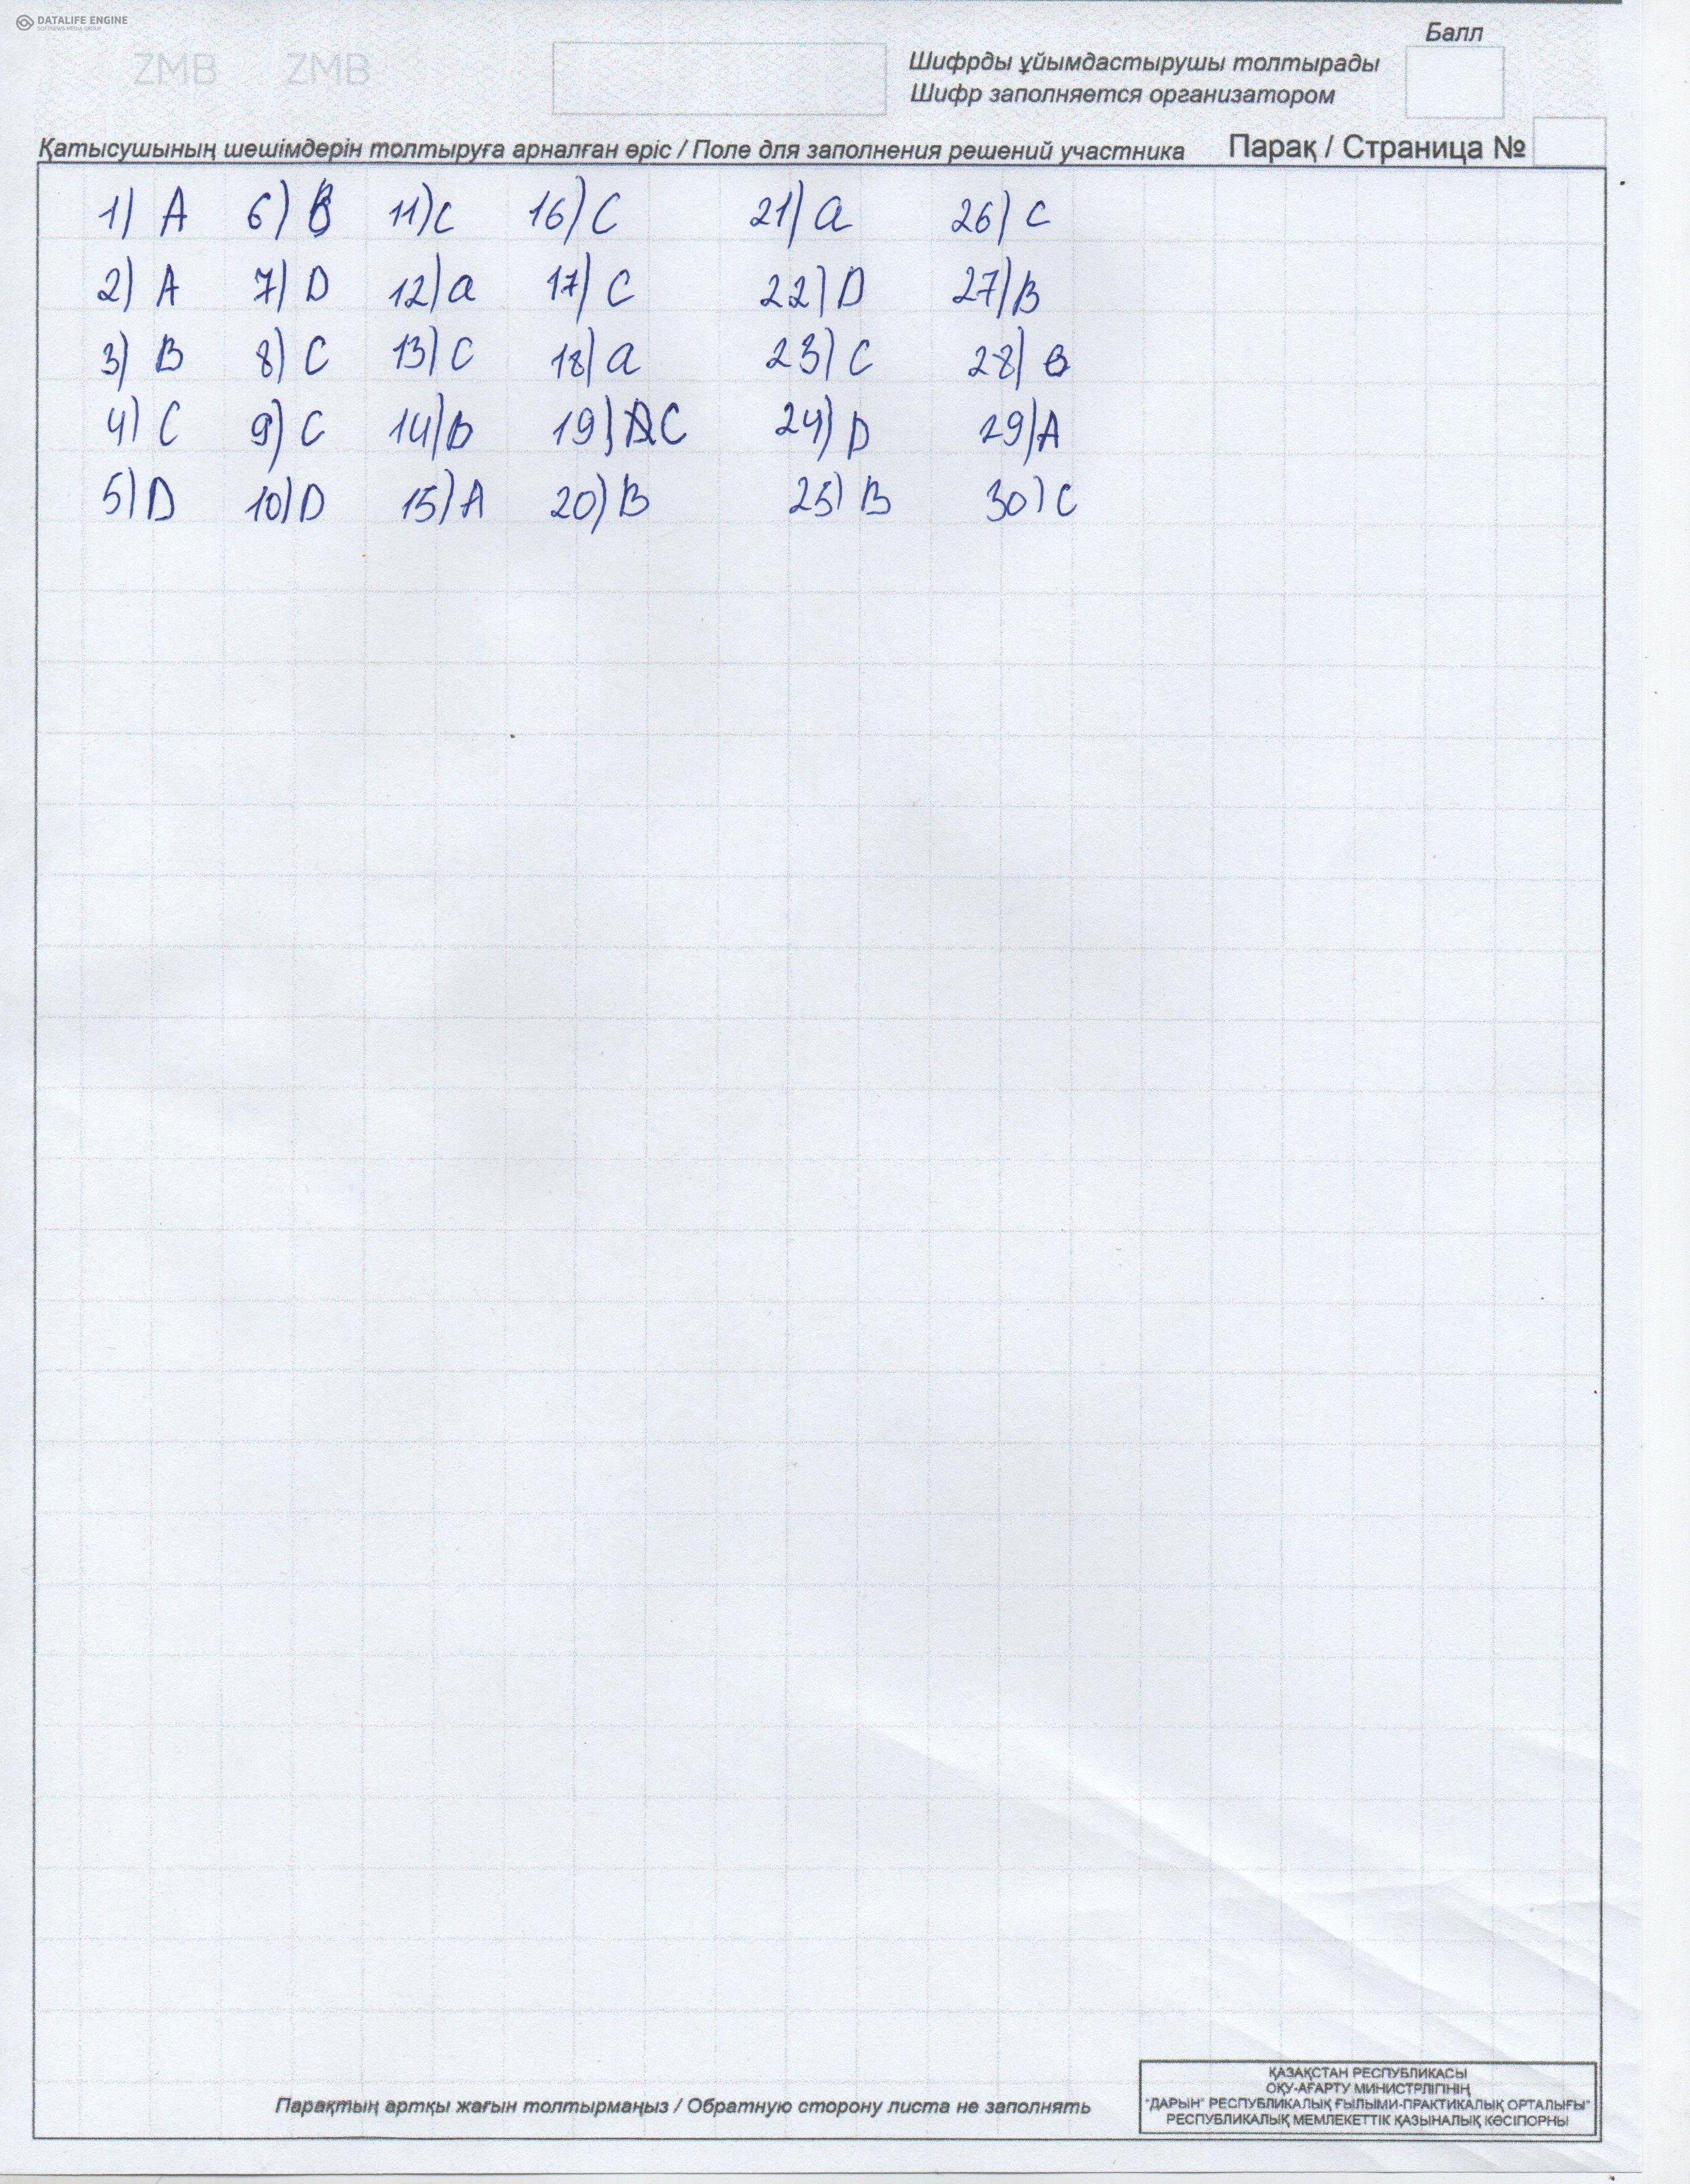 DATALIFE ENGINE
SOFTNEWS MEDIA GROUP
ZMB ZMB
Балл
Шифрды ұйымдастырушы толтырады
Шифр заполняется организатором
Қатысушының шешімдерін толтыруға арналған өріс / Поле для заполнения решений участника Парақ / Страница №
1) A 6) B 11) c 16) C 21) a 26) c
2) A 7) D 12) a 17) C 22) D 27) B
3) B 8) C 13) C 18) a 23) C 28) в
4) C 9) C 14) D 19) C 24) D 29) A
5) D 10) D 15) A 20) B 25) B 30) C
Парақтың артқы жағын толтырмаңыз / Обратную сторону листа не заполнять
ҚАЗАҚСТАН РЕСПУБЛИКАСЫ
ОҚУ-АҒАРТУ МИНИСТРЛІГІНІҢ
"ДАРЫН" РЕСПУБЛИКАЛЫҚ ҒЫЛЫМИ-ПРАКТИКАЛЫҚ ОРТАЛЫҒЫ"
РЕСПУБЛИКАЛЫҚ МЕМЛЕКЕТТІК ҚАЗЫНАЛЫҚ КӘСІПОРНЫ